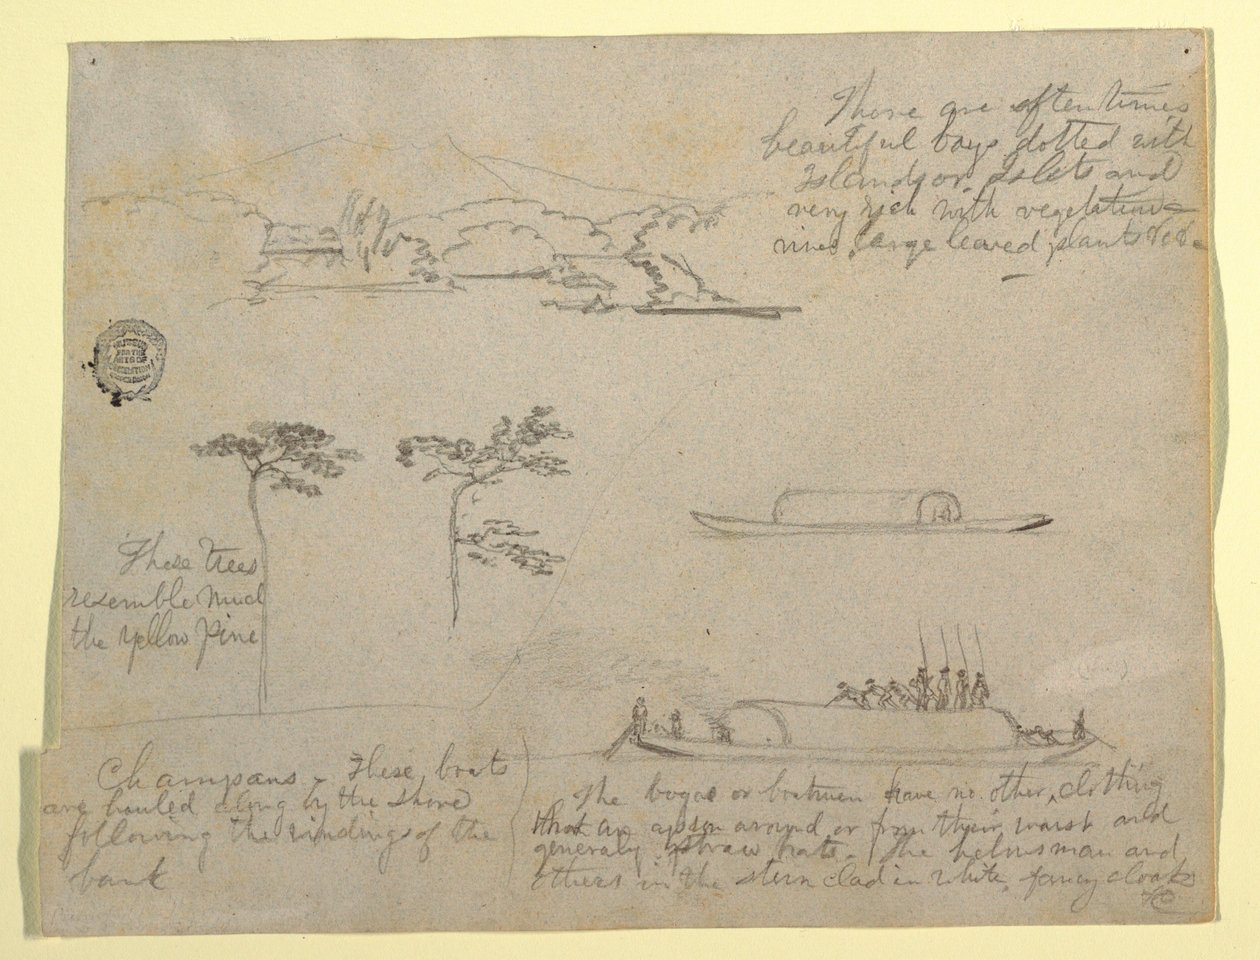 There are often times
beautiful bays dotted with
Islands or Islets and
very rich with vegetation
vines, large leaved plants &c &c
MUSEUM
FOR THE
ARTS OF
DECORATION
These trees
resemble much
the yellow pine
Champans - These boats
are hauled along by the shore
following the windings of the
bank
The bogas or boatmen have no other clothing
than an apron around or from their waist and
generaly straw hats. The helmsman and
others in the stern clad in white, fancy cloaks